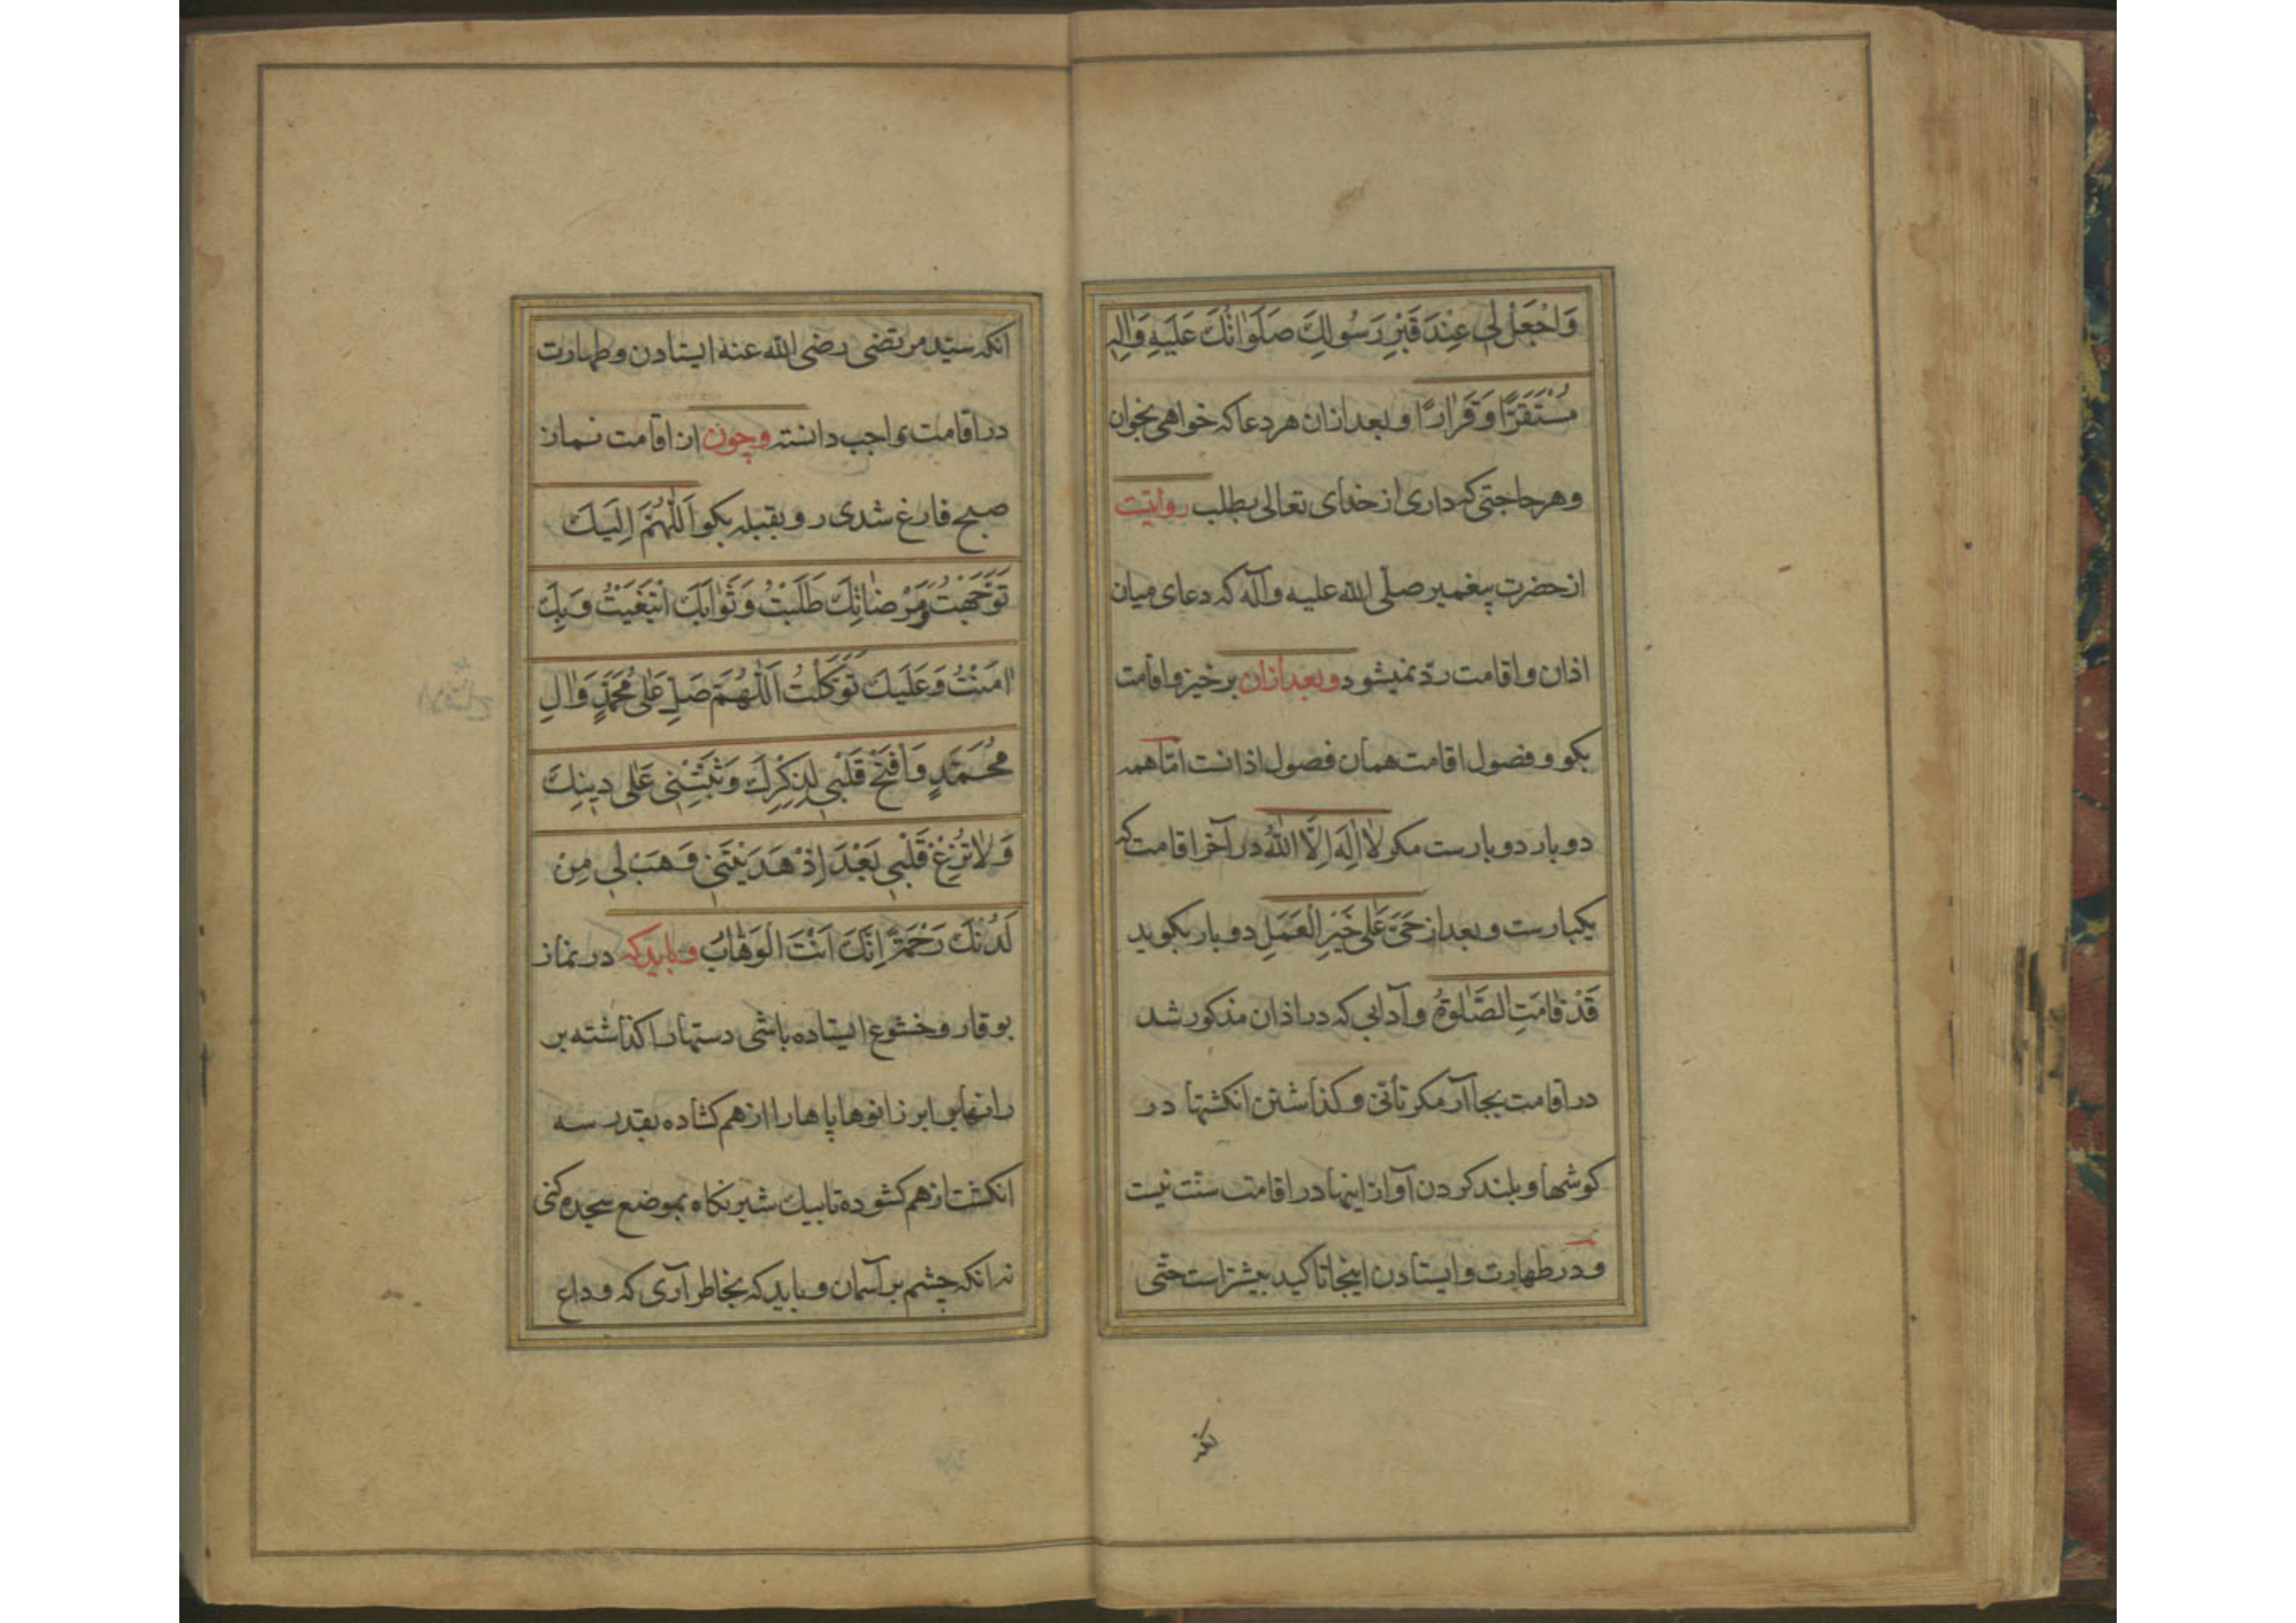 وَاجْعَلْ لِي عِنْدَ قَبْرِ رَسُولِكَ صَلَوَاتُكَ عَلَيْهِ وَاٰلِهِ
مُسْتَقَرًّا وَقَرَارًا و بعد ازان هر دعا که خواهی بخوان
و هر حاجتی که داری از خدای تعالی بطلب روایتست
از حضرت پیغمبر صلّی الله علیه وآله که دعای میان
اذان و اقامت ردّ نمیشود و بعد ازان برخیز و اقامت
بکو و فصول اقامت همان فصول اذانست امّا همه
دو بار دو بارست مکر لَا اِلٰهَ اِلَّا اللّٰهُ در آخر اقامت که
یکبارست و بعد از حَیَّ عَلٰی خَیْرِ الْعَمَلِ دو بار بکوید
قَدْ قَامَتِ الصَّلٰوةُ و آدابی که در اذان مذکور شد
در اقامت بجا آر مکر تأنّی و کذاشتن انکشتها در
کوشها و بلند کردن آواز اینها در اقامت سنّت نیست
و در طهارت و ایستادن اینجا تاکید بیشتر است حتّی
انکه سیّد مرتضی رضی الله عنه ایستادن و طهارت
در اقامت واجب دانسته و چون از اقامت نماز
صبح فارغ شدی رو بقبله بکو اَللّٰهُمَّ اِلَیْكَ
تَوَجَّهْتُ وَمَرْضَاتِكَ طَلَبْتُ وَثَوَابَكَ ابْتَغَیْتُ وَبِكَ
اٰمَنْتُ وَعَلَیْكَ تَوَكَّلْتُ اَللّٰهُمَّ صَلِّ عَلٰی مُحَمَّدٍ وَاٰلِ
مُحَمَّدٍ وَافْتَحْ قَلْبِي لِذِكْرِكَ وَثَبِّتْنِي عَلٰی دِینِكَ
وَلَا تُزِغْ قَلْبِي بَعْدَ اِذْ هَدَیْتَنِي وَهَبْ لِي مِنْ
لَدُنْكَ رَحْمَةً اِنَّكَ اَنْتَ الْوَهَّابُ و باید که در نماز
بوقار و خشوع ایستاده باشی دستها را کذاشته بر
رانها برابر زانوها پاها را از هم کشاده بقدر سه
انکشت از هم کشوده تا بیك شبر نکاه بموضع سجده کنی
نه انکه چشم بر آسمان و باید که بخاطر آری که وداع